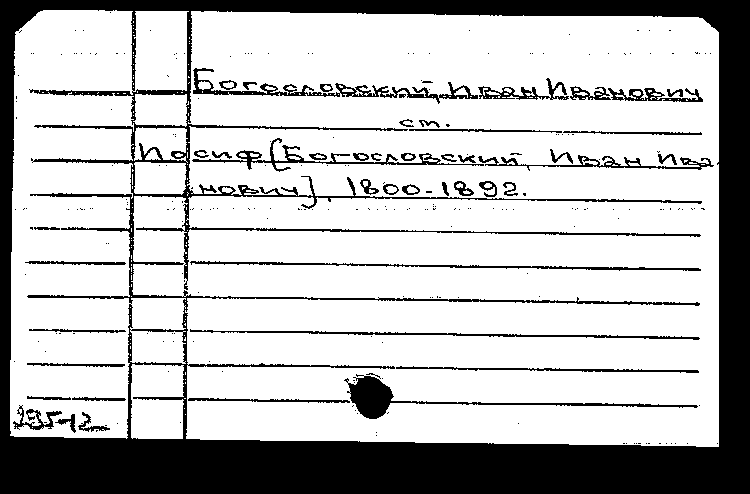 Богословский, Иван Иванович
ст.
Иосиф [Богословский, Иван Ива
нович], 1800-1892.